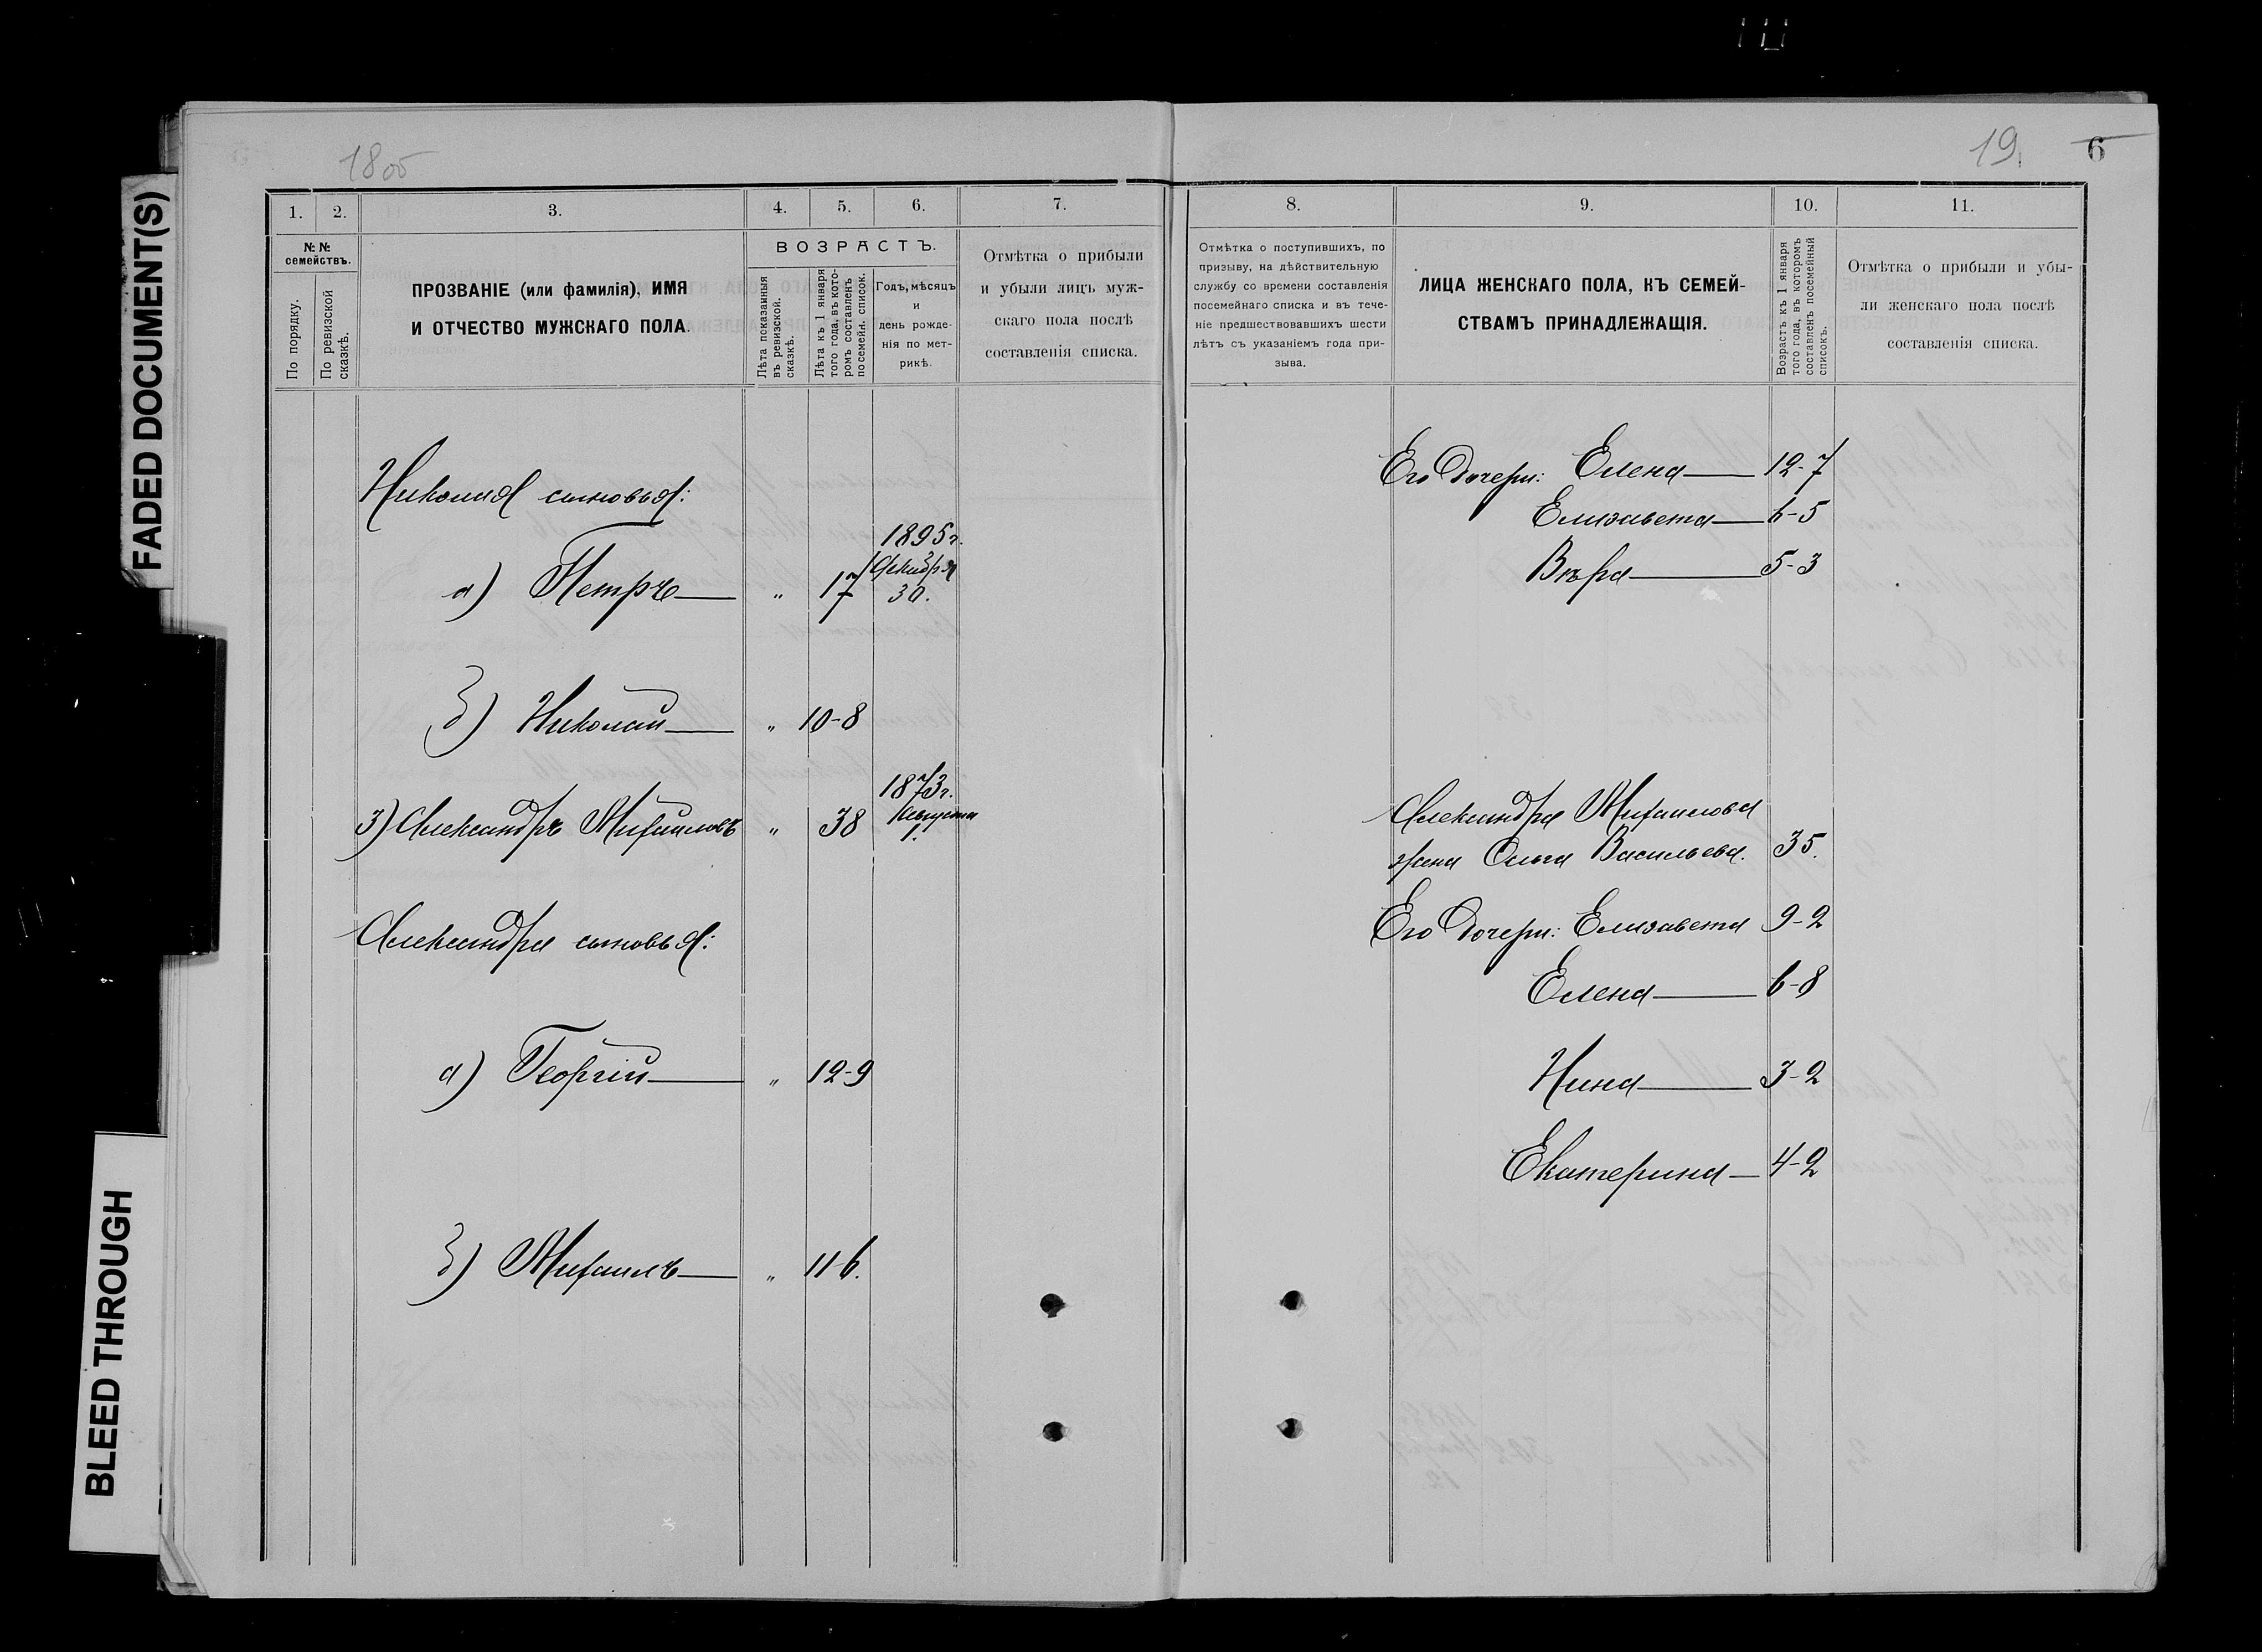 FADED DOCUMENT(S)
BLEED THROUGH
19.
6
1.
2.
3.
4.
5.
6.
7.
№ №
семействъ.
По порядку.
По ревизской
сказкѣ.
ПРОЗВАНІЕ (или фамилія), ИМЯ
И ОТЧЕСТВО МУЖСКАГО ПОЛА.
ВОЗРАСТЪ.
Лѣта показанныя
въ ревизской.
сказкѣ.
Лѣта къ 1 января
того года, въ кото-
ромъ составленъ
посемейн. список.
Годъ, мѣсяцъ
и
день рожде-
нія по мет-
рикѣ.
Отмѣтка о прибыли
и убыли лицъ муж-
скаго пола послѣ
составленія списка.
Николая сыновья:
а) Петръ — " 17 1895 г. Декабря 30.
б) Николай — " 10-8
3) Александръ Михаиловъ " 38 1873 г. Августа 1.
Александра сыновья:
а) Георгій — " 12-9
б) Михаилъ — " 11-6.
8.
9.
10.
11.
Отмѣтка о поступившихъ, по
призыву, на дѣйствительную
службу со времени составленія
посемейнаго списка и въ тече-
ніе предшествовавшихъ шести
лѣтъ съ указаніемъ года при-
зыва.
ЛИЦА ЖЕНСКАГО ПОЛА, КЪ СЕМЕЙ-
СТВАМЪ ПРИНАДЛЕЖАЩІЯ.
Возрастъ къ 1 января
того года, въ которомъ
составленъ посемейный
списокъ.
Отмѣтка о прибыли и убы-
ли женскаго пола послѣ
составленія списка.
Его дочери: Елена — 12-7
Елизавета — 6-5
Вѣра — 5-3
Александра Михаилова
жена Ольга Васильева. 35.
Его дочери: Елизавета 9-2
Елена — 6-8
Нина — 3-2
Екатерина — 4-2